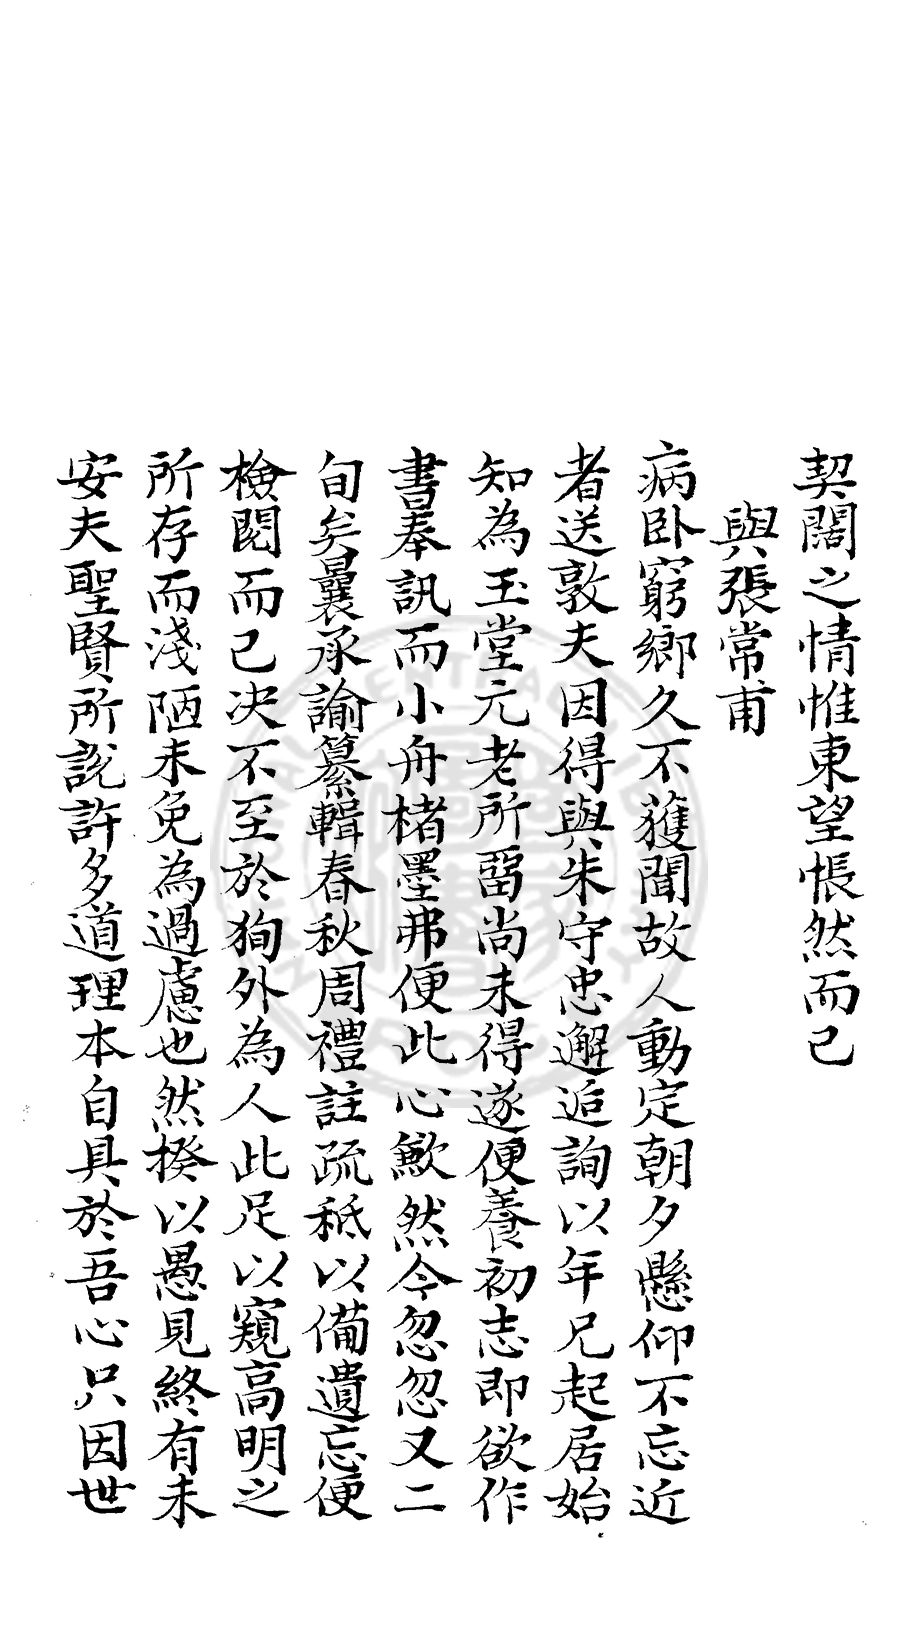 契闊之情惟東望悵然而已
與張常甫
病卧窮鄉久不獲聞故人動定朝夕懸仰不忘近
者送敦夫因得與朱守忠邂逅詢以年兄起居始
知為玉堂元老所留尚未得遂便養初志即欲作
書奉訊而小舟楮墨弗便此心歉然今忽忽又二
旬矣曩承諭纂輯春秋周禮註疏秪以備遺忘便
檢閱而已决不至於狥外為人此足以窺高明之
所存而淺陋未免為過慮也然揆以愚見終有未
安夫聖賢所說許多道理本自具於吾心只因世